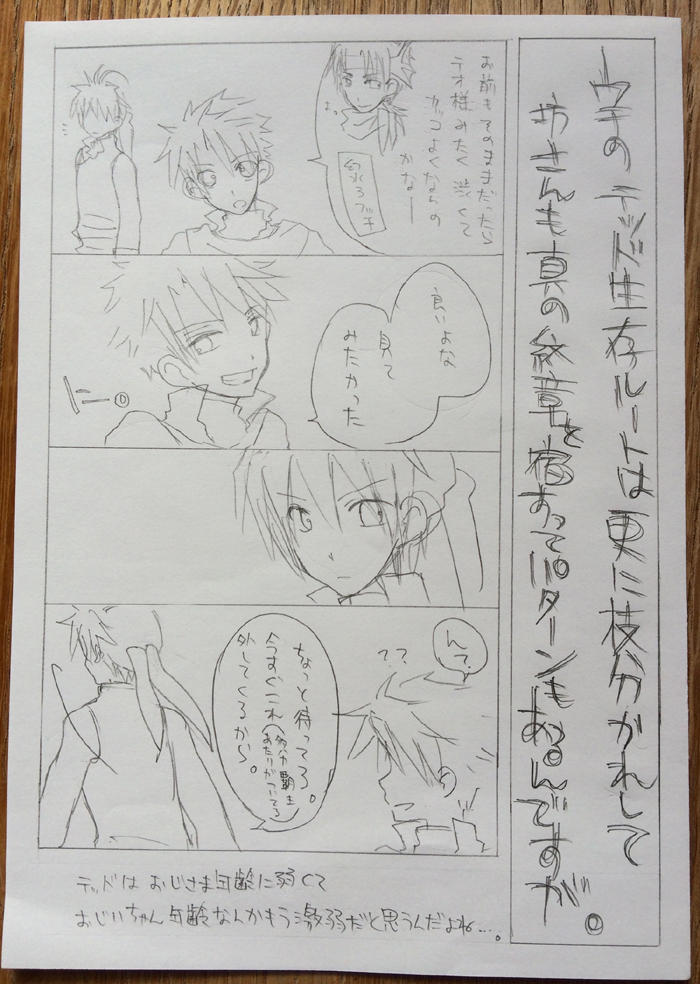 ウチのテッド生存ルートは更に枝分かれして
坊さんも真の紋章を宿すってパターンもあるんですが。
お前もそのままだったら
テオ様みたく渋くて
カッコよくなるの
かなー
良いよな
見て
みたかった
に-。
ん?
??
ちょっと待ってろ。
今すぐこれ
外してくるから。
テッドはおじさま年齢に弱くて
おじいちゃん年齢なんかもう激弱だと思うんだよね…。